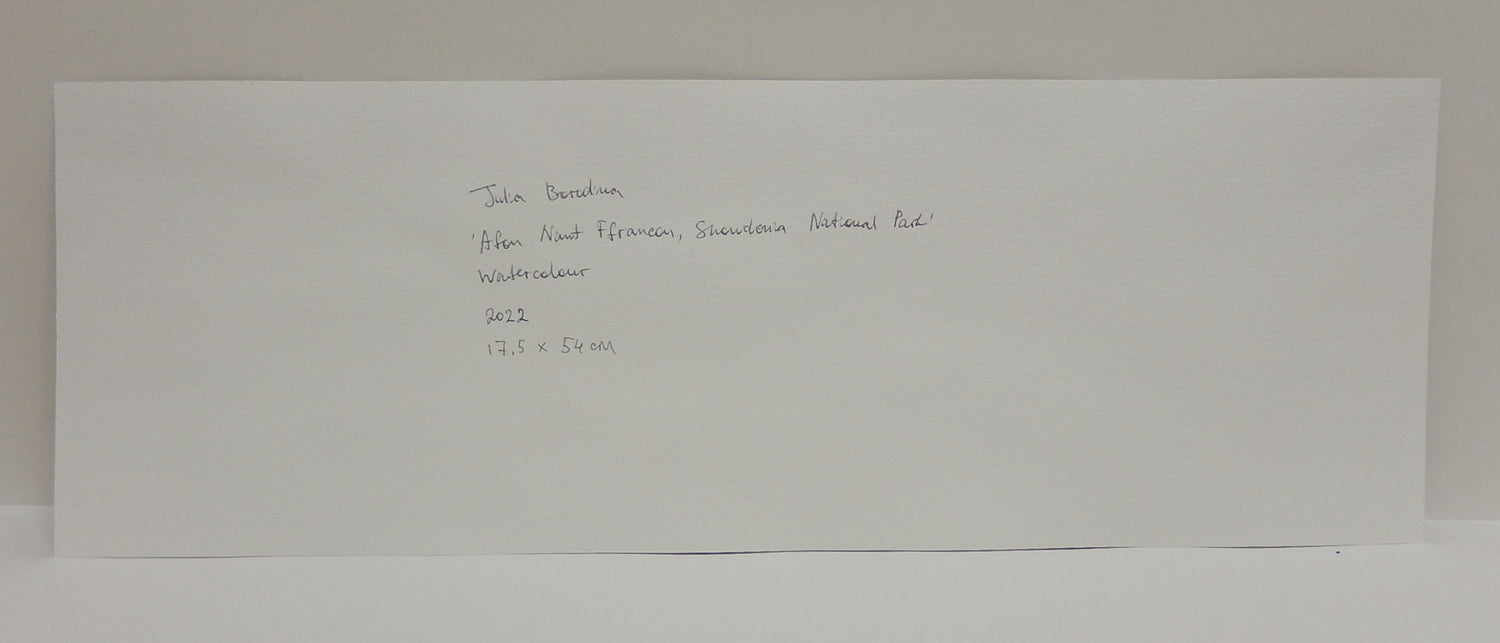 Julia Borodina
'Afon Nant Ffrancon, Snowdonia National Park'
Watercolour
2022
17.5 x 54 cm